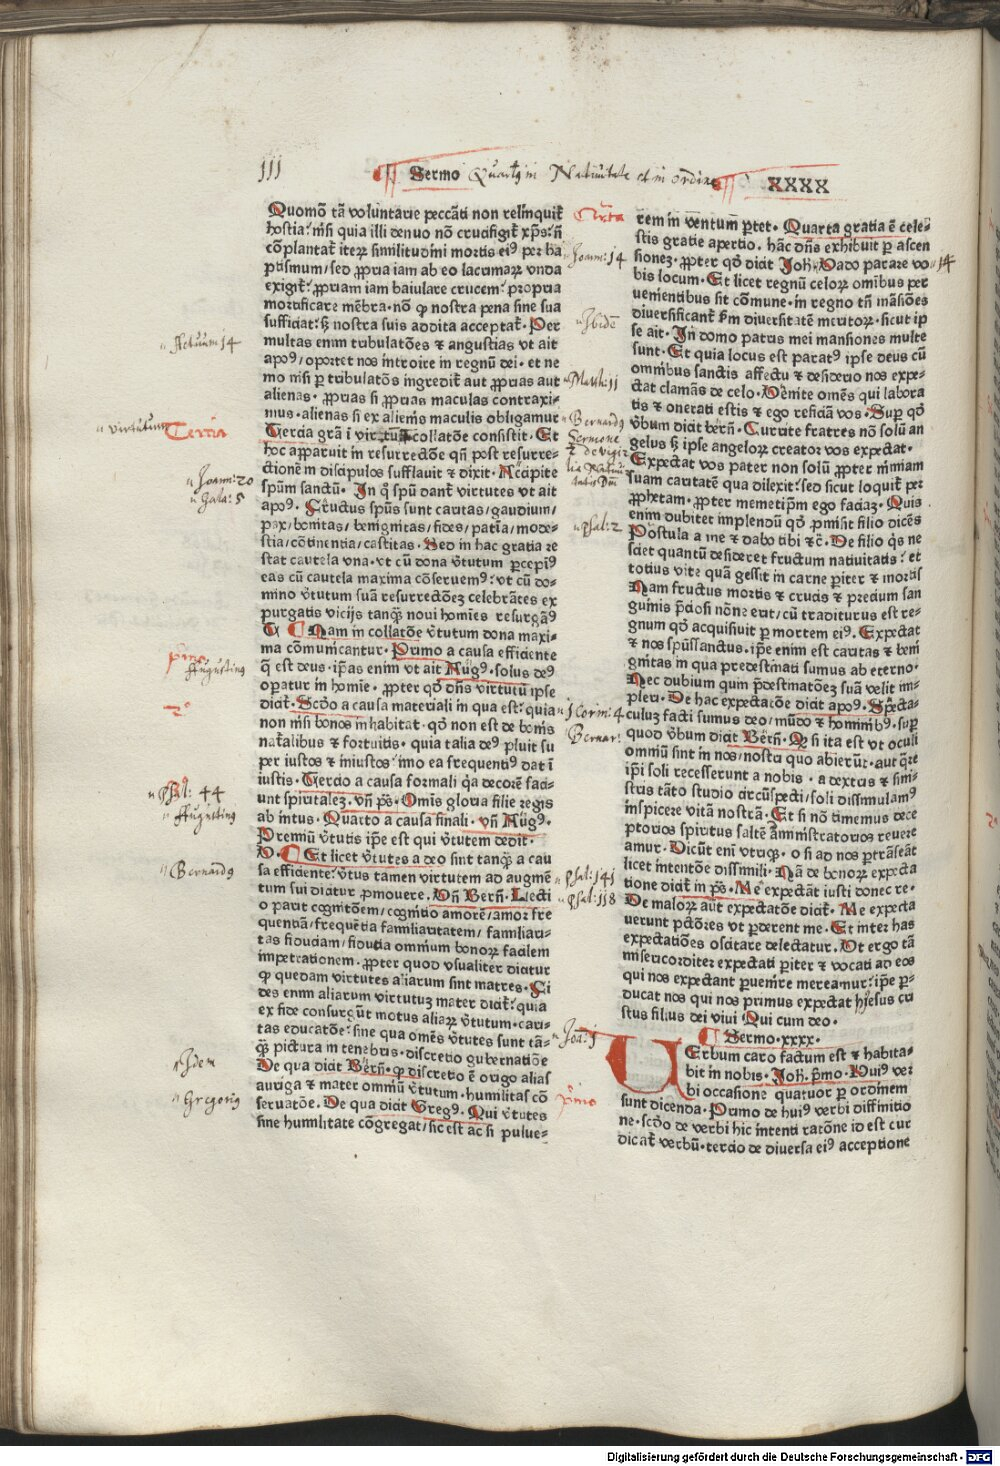 111 Sermo Quart9 in Natiuitate et in ordine XXXX
Quomō tā voluntarie peccāti non relinquit̄
hostia: nisi quia illi denuo nō crucifigit̄ xp̄s: n̄
cōplantat̄ iterꝝ similitudini mortis ei9 per ba
ptismum/sed ꝓpria iam ab eo lacrimarꝝ vnda
exigit̄: ꝓpriam iam baiulare crucem: propria
mortificare mēbra. nō ꝙ nostra pena sine sua
sufficiat: sꝫ nostra suis addita acceptat̄. Per
multas enim tribulatōes ⁊ angustias vt ait
apo9/oportet nos introire in regnū dei. et ne
mo nisi ꝑ tribulatōs ingredit̄ aut ꝓprias aut
alienas. ꝓprias si ꝓprias maculas contraxi
mus. alienas si ex alienis maculis obligamur
Tercia gr̄a ī virtutū collatōe consistit. Et
hoc apparuit in resurrectōe qn̄ post resurre-
ctionē m discipulos sufflauit ⁊ dixit. Accipite
spūm sanctū. In qͦ spū dant̄ virtutes vt ait
apo9. Fructus spūs sunt caritas/gaudium/
pax/bonitas/benignitas/fides/patīa/mode-
stia/cōtinentia/castitas. Sed in hac gratia re
stat cautela vna. vt cū dona v̄tutum ꝑcepi9
eas cū cautela maxima cōseruem9: vt cū do-
mino v̄tutum suā resurrectōeꝫ celebrātes ex
purgatis vicijs tanqꝫ noui homīes resurgā9
C Nam in collatōe v̄tutum dona maxi-
ma cōmunicantur. Primo a causa efficiente
q̄ est deus. ip̄as enim vt ait Aug9. solus de9
oꝑatur in homīe. ꝓpter qd̄ dn̄s virtutū ip̄se
dicit̄. Scd̄o a causa materiali in qua est: quia
non nisi bonos inhabitat. qd̄ non est de bonis
nat̄alibus ⁊ fortuitis. quia talia de9 pluit su
per iustos ⁊ iniustos: imo ea frequenti9 dat ī
iustis. Tercio a causa formali q̄a decorē faci-
unt spiritaleꝫ. vn̄ ps̄. Omis gloria filie regis
ab intus. Quarto a causa finali. vn̄ Aug9.
Premiū v̄tutis ip̄e est qui v̄tutem dedit.
D. Et licet v̄tutes a deo sint tanqꝫ a cau
sa efficiente: v̄tus tamen virtutem ad augmē
tum sui dicitur ꝓmouere. Vn̄ Bern̄. Lecti
o parit cognitōem/cognitio amorē/amor fre
quentiā/frequētia familiaritatem/familiari-
tas fiduciam/fiducia omnium bonorꝝ facilem
impetrationem. ꝓpter quod vsualiter dicitur
ꝙ quedam virtutes aliarum sint matres. Fi
des enim aliarum virtutuꝫ mater dicit̄: quia
ex fide consurgūt motus aliarꝝ v̄tutum. cari-
tas educatōe: sine qua omēs v̄tutes sunt tā-
qꝫ pictura in tenebris. discretio gubernatiōe
De qua dicit Bern̄. ꝙ discretio ē origo alias
auriga ⁊ mater omniū v̄tutum. humilitas cō
seruatōe. De qua dicit Greg9. Qui v̄tutes
sine humilitate cōgregat/sic est ac si pulue-
rem in ventum portet. Quarta gratia ē cele-
stis gratie apertio. hāc dn̄s exhibuit ꝑ ascen
sioneꝫ. ꝓpter qd̄ dicit Joh̄. Vado parare vo
bis locum. Et licet regnū celorꝝ omibus per
uenientibus sit cōmune. in regno tn̄ māsiōes
diuersificant̄ ẜm diuersitatē meritorꝝ. sicut ip
se ait. In domo patris mei mansiones multe
sunt. Et quia locus est parat9 ipse deus cū
omnibus sanctis affectu ⁊ desiderio nos expe-
ctat clamās de celo. Venite omēs qui labora
tis ⁊ onerati estis ⁊ ego reficiā vos. Super qd̄
v̄bum dicit bern̄. Currite fratres nō solū an
gelus sꝫ ipse angelorꝝ creator vos expectat.
Expectat vos pater non solū ꝓpter nimiam
suam caritatē qua dilexit: sed sicut loquit̄ per
ꝓphetam. ꝓpter memetip̄m ego faciaꝫ. Quis
enim dubitet implendū qd̄ ꝓmisit filio dicēs
Postula a me ⁊ dabo tibi ⁊c̄. De filio q̄s ne
sciet quantū desideret fructum natiuitatis: et
totius vite quā gessit in carne pariter ⁊ mortis
Nam fructus mortis ⁊ crucis ⁊ precium san
guinis p̄ciosi nōne erit/cū traditurus est re-
gnum qd̄ acquisiuit ꝑ mortem ei9. Expectat
⁊ nos spūssanctus. ip̄e enim est caritas ⁊ beni
gnitas in qua predestinati sumus ab eterno.
Nec dubium quin p̄destinatōeꝫ suā velit im-
pleri. De hac expectatōe dicit apo9. Specta-
culuꝫ facti sumus deo/mūdo ⁊ hominib9. sup̄
quod v̄bum dicit Bern̄. Qꝫ si ita est vt oculi
omniū sint in nos/nostri quo abierūt. aut q̄re
ip̄i soli recesserunt a nobis. a dextris ⁊ sini-
stris tāto studio circūspecti/soli dissimulam9
inspicere vitā nostrā. Et si nō timemus dece
ptorios spiritus saltē āministratorios reuere
amur. Dicūt eni vtriqꝫ. o si ad nos ꝑtrāseāt
licet intentōe dissimili. Nā de bonorꝝ expecta
tione dicit̄ in ps̄. Me expectāt iusti donec re.
De malorꝝ aūt expectatōe dicit̄. Me expecta
uerunt pctōres vt ꝑderent me. Et inter has
expectatiōes oscitare delectatur. Vt ergo tā
misericorditer expectati pariter ⁊ vocati ad eos
qui nos expectant ꝑuenire mereamur: ip̄e ꝑ-
ducat nos qui nos primus expectat hiesus cri
stus filius dei viui. Qui cum deo.
Sermo. xxxx.
Uerbum caro factum est ⁊ habita-
bit in nobis. Joh̄. p̄mo. Hui9 ver
bi occasione quatuor ꝑ ordinem
sunt dicenda. Primo de hui9 verbi diffinitio
ne. scd̄o de verbi hic intenti ratōne id est cur
dicat̄ verbū. tercio de diuersa ei9 acceptione
Actuum 14
virtutum Tertia
Joann: 20
Gala: 5
pīmo
Augustin9
2o
Psal: 44
Augustin9
Bernard9
Idem
Gregori9
Quarta
Joann: 14
14
Ibidē
Math: 11
Bernard9
Sermone
2 de vigi
lia Natiui
tatis Dnī
Psal: 2
1 Corin: 4
Bernar:
Psal: 141
Psal: 118
Joa: 1
pīmo
Digitalisierung gefördert durch die Deutsche Forschungsgemeinschaft - DFG